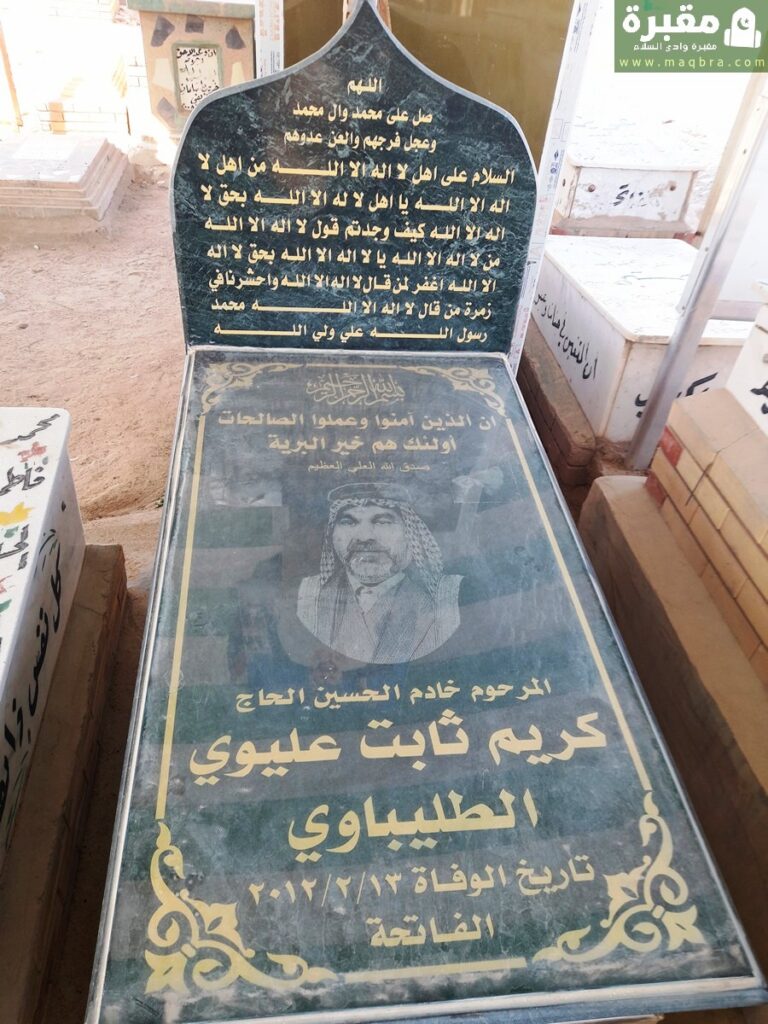 مقبرة
مقبرة وادي السلام
www.maqbra.com
اللهم
صل على محمد وال محمد
وعجل فرجهم والعن عدوهم
السلام على اهل لا اله الا اللــه من اهل لا
اله الا اللــه يا اهل لا له الا اللــه بحق لا
اله الا الله كيف وجدتم قول لا اله الا الله
من لا اله الا اللــه يا لا اله الا الله بحق لا اله
الا اللـه اغفر لمن قال لا اله الا الله واحشرنا في
زمرة من قال لا اله الا اللــــه محمد
رسول اللــــه علي ولي اللــــه
بسم الله الرحمن الرحيم
ان الذين آمنوا وعملوا الصالحات
أولئك هم خير البرية
صدق الله العلي العظيم
المرحوم خادم الحسين الحاج
كريم ثابت عليوي
الطليباوي
تاريخ الوفاة ٢٠١٢/٢/١٣
الفاتحة
محمد
كل نفس